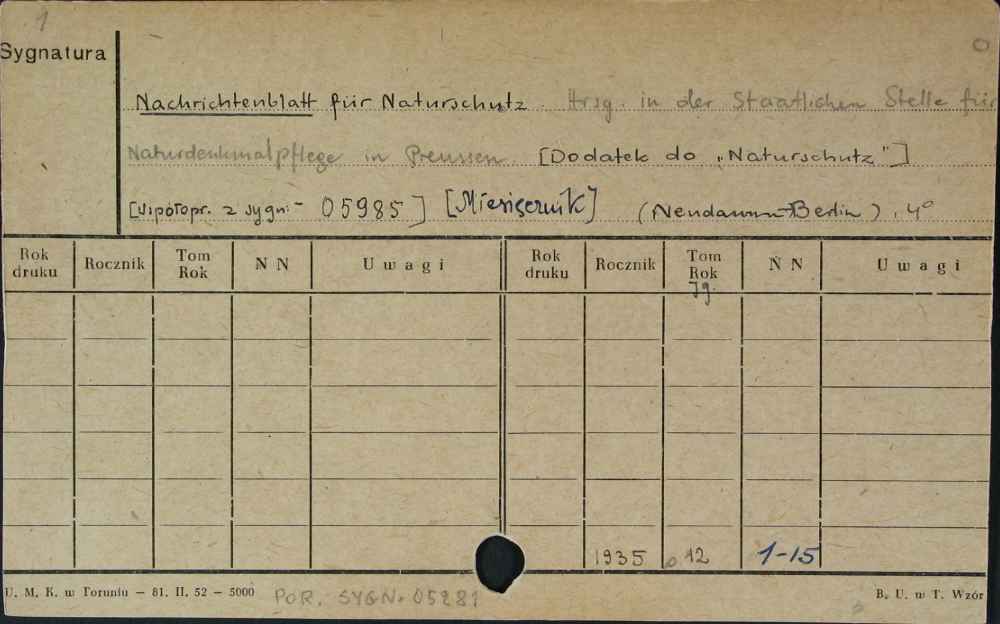 1
Sygnatura
Nachrichtenblatt für Naturschutz. Hrsg. in der Staatlichen Stelle für
Naturdenkmalpflege in Preussen. [Dodatek do „Naturschutz"]
[Współopr. z sygn. - 05985] [Miesięcznik] (Neudamm-Berlin). 4°
Rok druku Rocznik Tom Rok N N Uwagi Rok druku Rocznik Tom Rok N N Uwagi
Jg.
1935 12 1-15
U. M. K. w Toruniu – 81. II. 52 – 5000 POR. SYGN. 05281 B. U. w T. Wzór